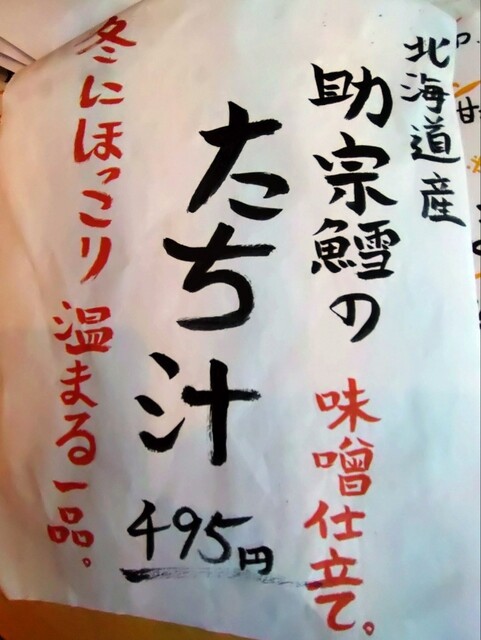 北海道産
助宗鱈の
味噌仕立て。
たち汁
495円
冬にほっこり
温まる一品。
甘